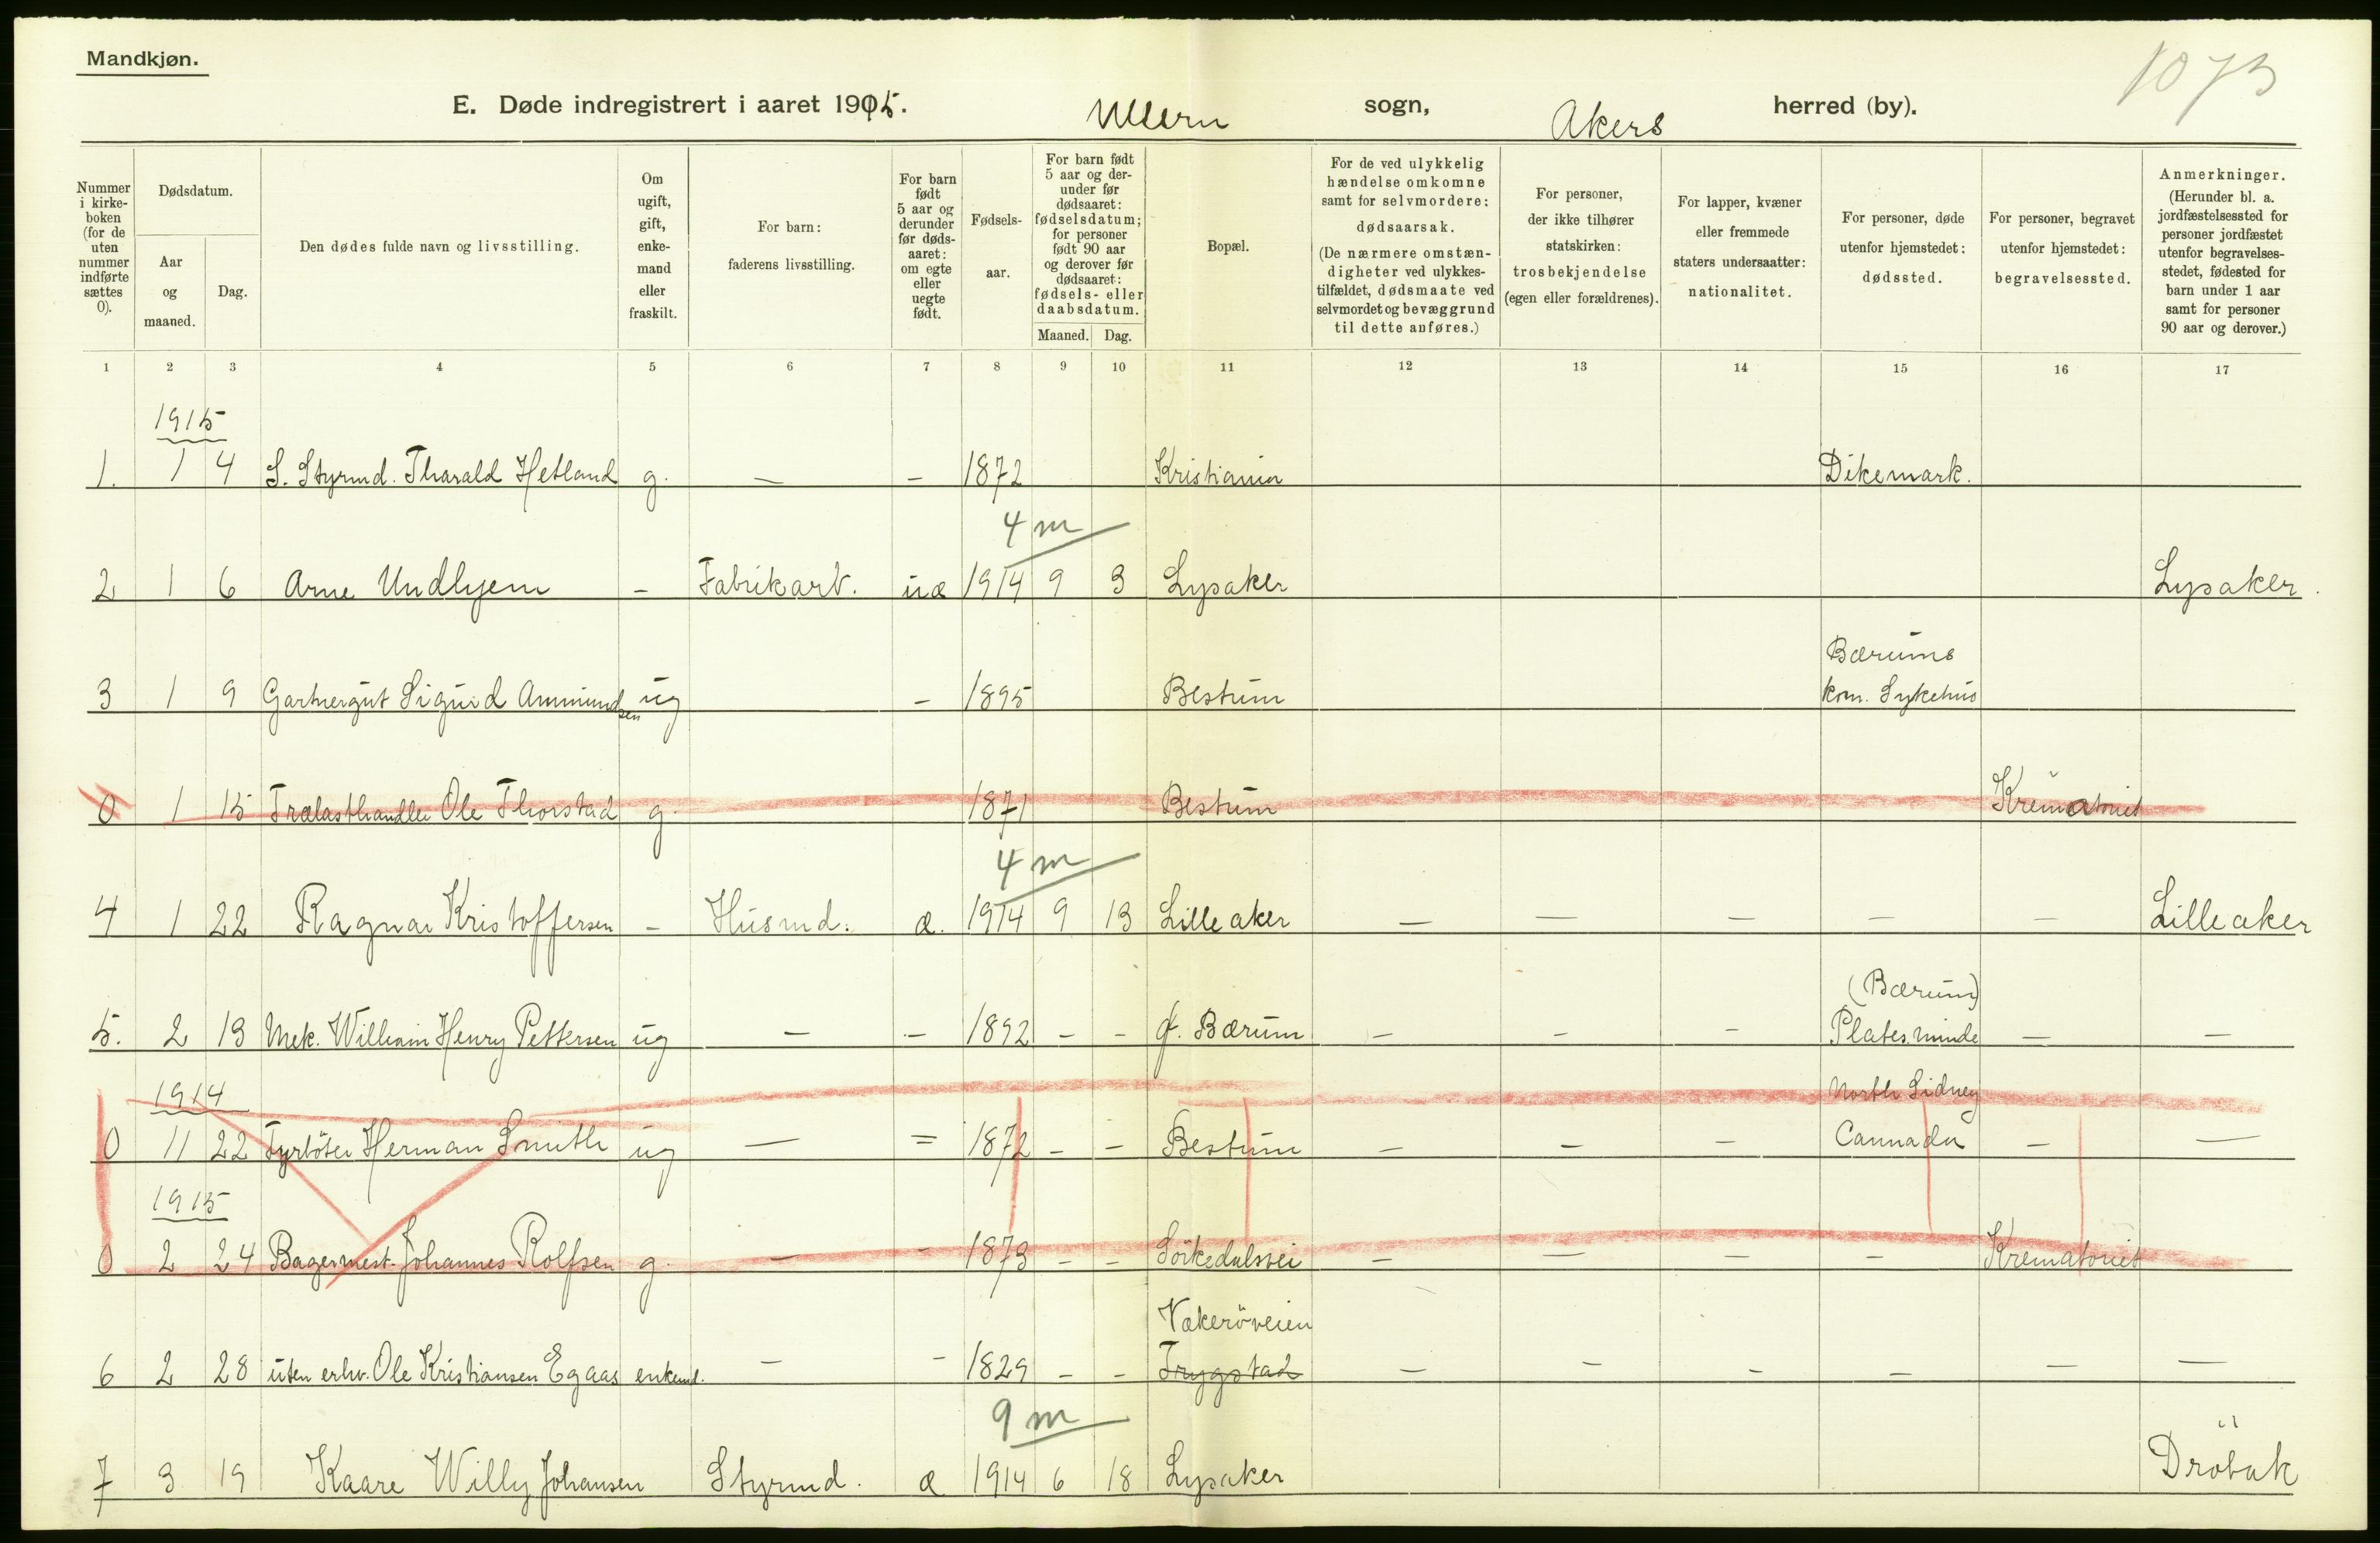 Mandkjøn.
1073
E. Døde indregistrert i aaret 1915. Ullern sogn, Akers herred (by).
Nummer i kirke- boken (for de uten nummer indførte sættes 0).
Dødsdatum.
Aar og maaned.
Dag.
Den dødes fulde navn og livsstilling.
Om ugift, gift, enke- mand eller fraskilt.
For barn: faderens livsstilling.
For barn født 5 aar og derunder før døds- aaret: om egte eller uegte født.
Fødsels- aar.
For barn født 5 aar og der- under før dødsaaret: fødselsdatum; for personer født 90 aar og derover før dødsaaret: fødsels- eller daabsdatum.
Maaned. Dag.
Bopæl.
For de ved ulykkelig hændelse omkomne samt for selvmordere: dødsaarsak. (De nærmere omstæn- digheter ved ulykkes- tilfældet, dødsmaate ved selvmordet og bevæggrund til dette anføres.)
For personer, der ikke tilhører statskirken: trosbekjendelse (egen eller forældrenes).
For lapper, kvæner eller fremmede staters undersaatter: nationalitet.
For personer, døde utenfor hjemstedet: dødssted.
For personer, begravet utenfor hjemstedet: begravelsessted.
Anmerkninger. (Herunder bl. a. jordfæstelsessted for personer jordfæstet utenfor begravelses- stedet, fødested for barn under 1 aar samt for personer 90 aar og derover.)
1 2 3 4 5 6 7 8 9 10 11 12 13 14 15 16 17
1915
1. 1 4 S. Styrmd. Tharald Hetland g. — – 1872 Kristiania Dikemark.
4 m
2 1 6 Arne Undlyem – Fabrikarb. uæ 1914 9 3 Lysaker Lysaker.
Bærums
3 1 9 Gartnergut Sigurd Ammundsen ug – 1895 Bestum kom. Sykehus
0 1 15 Trælasthandler Ole Thorstad g. 1871 Bestum Krematoriet
4 m
4 1 22 Ragnar Kristoffersen – Husmd. æ. 1914 9 13 Lilleaker — — — — — Lilleaker
(Bærum)
5. 2 13 Mek. William Henry Pettersen ug – – 1892 – – Ø. Bærum – – – Platesminde — —
1914 North Sidney
0 11 22 Fyrböter Herman Smith ug — = 1872 – – Bestum – – – Cannada – —
1915
0 2 24 Bagermest. Johannes Rolfsen g. – – 1873 – – Sörkedalsvei – — – – Krematoriet
Vækeröveien
6 2 28 uten erhv. Ole Kristiansen Egaas enkemd. – – 1829 – – Trygstad – – – – — —
9 m
7 3 19 Kaare Willy Johansen Styrmd. æ 1914 6 18 Lysaker Dröbak